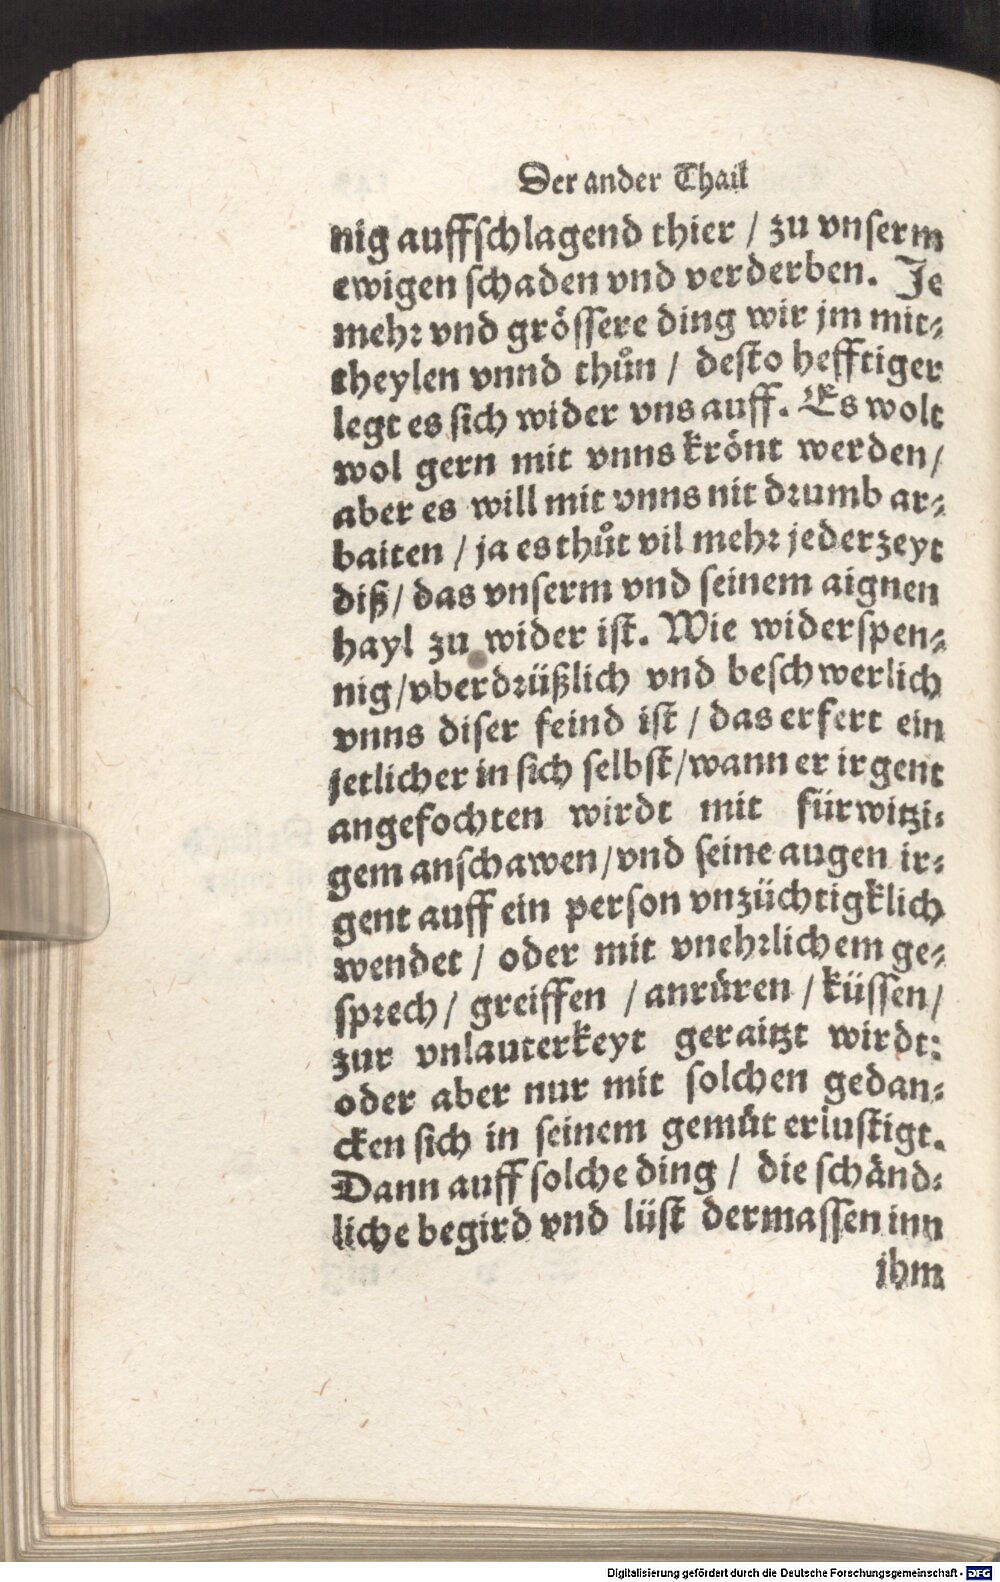 Der ander Thail
nig auffſchlagend thier / zu vnſerm
ewigen ſchaden vnd verderben. Je
mehr vnd gröſſere ding wir jm mit⸗
theylen vnnd thůn / deſto hefftiger
legt es ſich wider vns auff. Es wolt
wol gern mit vnns krönt werden/
aber es will mit vnns nit drumb ar⸗
baiten / ja es thůt vil mehr jederzeyt
diß/ das vnſerm vnd ſeinem aignen
hayl zu wider iſt. Wie widerſpen⸗
nig/vberdrüßlich vnd beſchwerlich
vnns diſer feind iſt / das erfert ein
jetlicher in ſich ſelbſt/wann er irgent
angefochten wirdt mit fürwitzi⸗
gem anſchawen/vnd ſeine augen ir⸗
gent auff ein perſon vnzüchtigklich
wendet / oder mit vnehrlichem ge⸗
ſprech/ greiffen / anrüren / küſſen/
zur vnlauterkeyt geraitzt wirdt:
oder aber nur mit ſolchen gedan⸗
cken ſich in ſeinem gemüt erluſtigt.
Dann auff ſolche ding / die ſchänd⸗
liche begird vnd lüſt dermaſſen inn
jhm
Digitalisierung gefördert durch die Deutsche Forschungsgemeinschaft - DFG